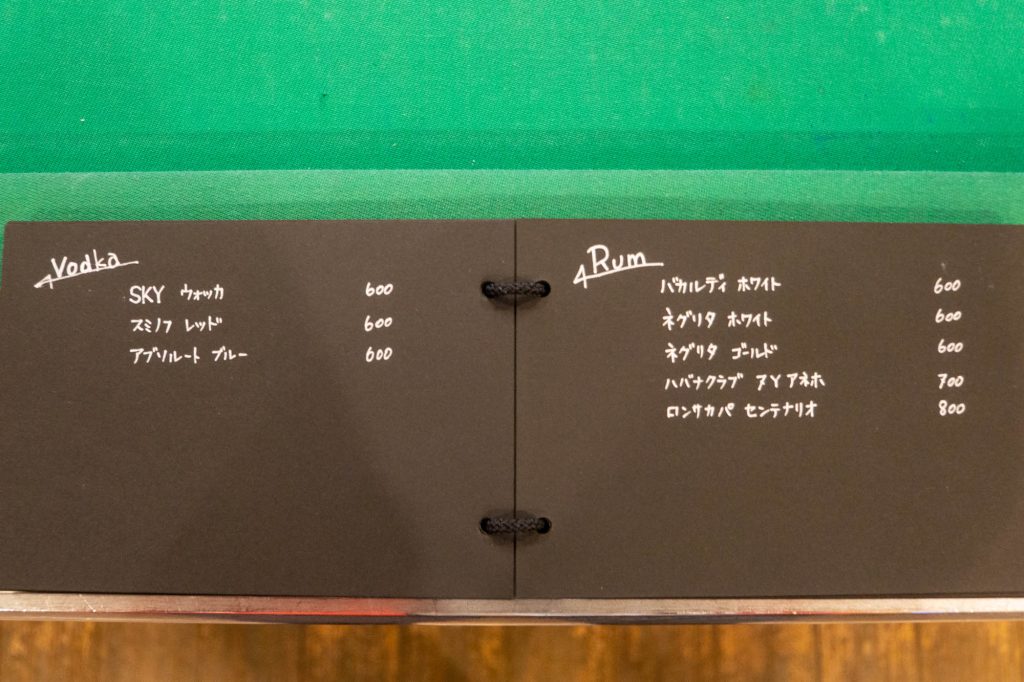 Vodka
SKY ウォッカ 600
スミノフ レッド 600
アブソルート ブルー 600
Rum
バカルディ ホワイト 600
ネグリタ ホワイト 600
ネグリタ ゴールド 600
ハバナクラブ 7Y アネホ 700
ロンサカパ センテナリオ 800